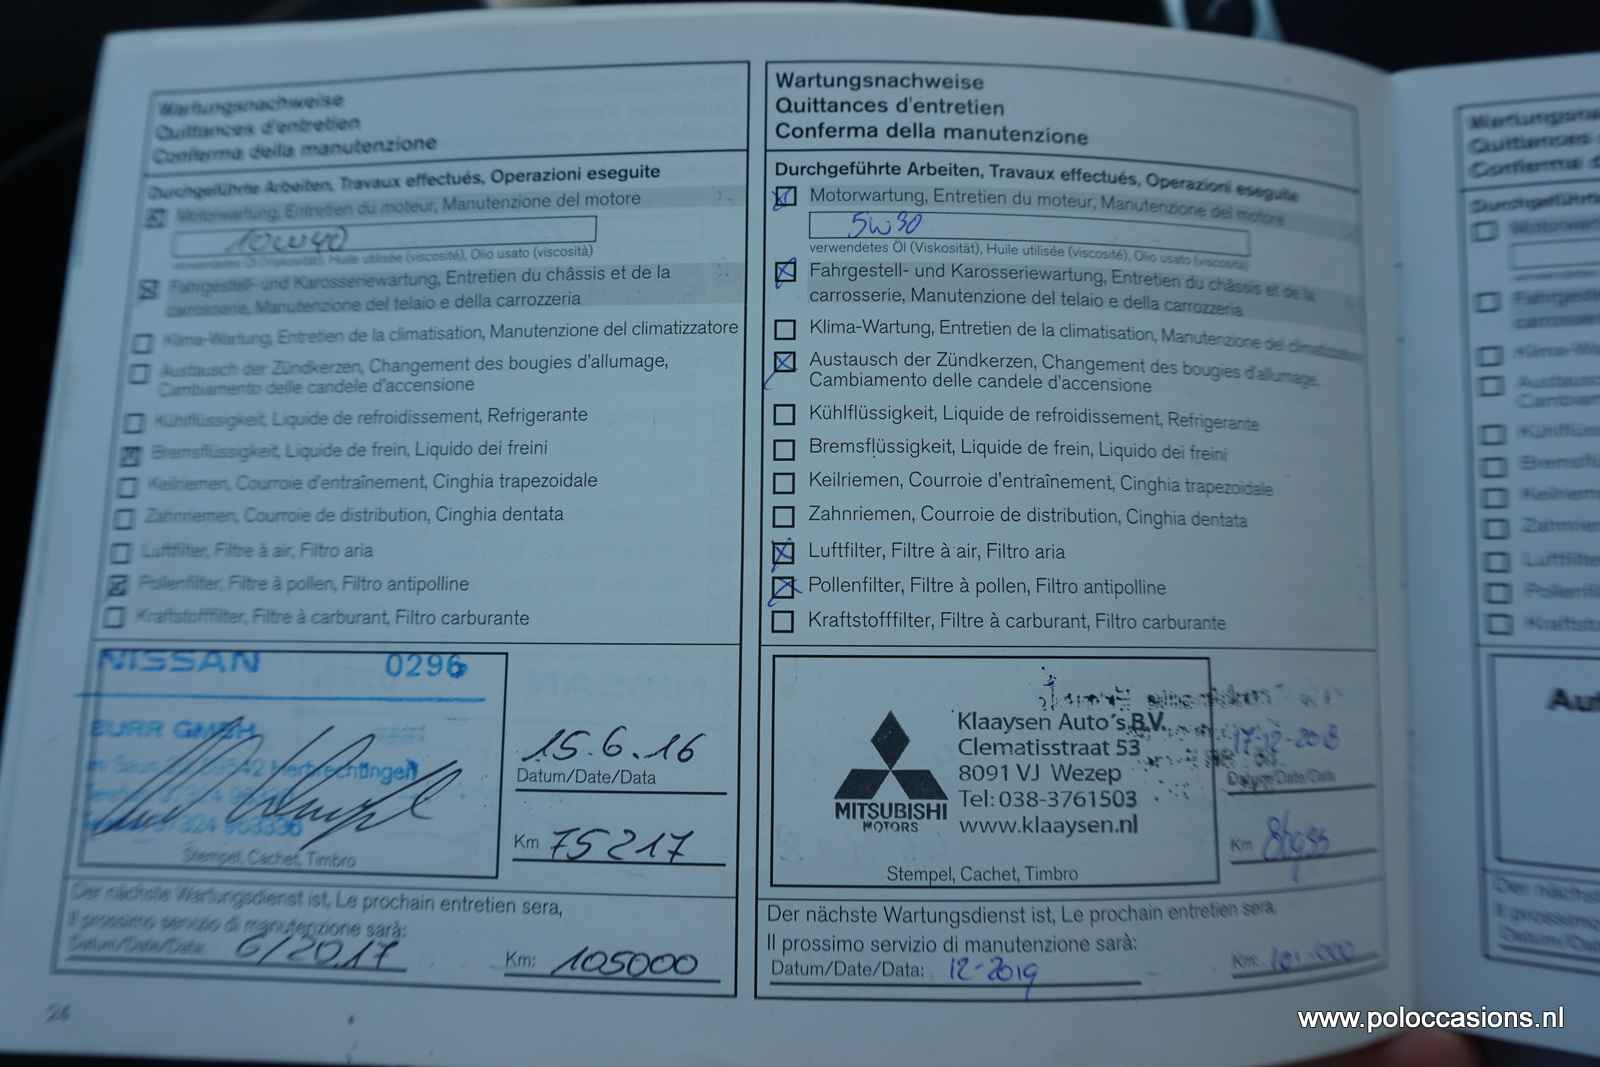 Wartungsnachweise
Quittances d'entretien
Conferma della manutenzione
Durchgeführte Arbeiten, Travaux effectués, Operazioni eseguite
Motorwartung, Entretien du moteur, Manutenzione del motore
10W40
verwendetes Öl (Viskosität), Huile utilisée (viscosité), Olio usato (viscosità)
Fahrgestell- und Karosseriewartung, Entretien du châssis et de la
carrosserie, Manutenzione del telaio e della carrozzeria
Klima-Wartung, Entretien de la climatisation, Manutenzione del climatizzatore
Austausch der Zündkerzen, Changement des bougies d'allumage,
Cambiamento delle candele d'accensione
Kühlflüssigkeit, Liquide de refroidissement, Refrigerante
Bremsflüssigkeit, Liquide de frein, Liquido dei freini
Keilriemen, Courroie d'entraînement, Cinghia trapezoidale
Zahnriemen, Courroie de distribution, Cinghia dentata
Luftfilter, Filtre à air, Filtro aria
Pollenfilter, Filtre à pollen, Filtro antipolline
Kraftstofffilter, Filtre à carburant, Filtro carburante
NISSAN 0296
BURR GMBH
Herbrechtingen
Stempel, Cachet, Timbro
15.6.16
Datum/Date/Data
Km 75217
Der nächste Wartungsdienst ist, Le prochain entretien sera,
Il prossimo servizio di manutenzione sarà:
Datum/Date/Data: 6/2017 Km: 105000
26
Wartungsnachweise
Quittances d'entretien
Conferma della manutenzione
Durchgeführte Arbeiten, Travaux effectués, Operazioni eseguite
Motorwartung, Entretien du moteur, Manutenzione del motore
5W30
verwendetes Öl (Viskosität), Huile utilisée (viscosité), Olio usato (viscosità)
Fahrgestell- und Karosseriewartung, Entretien du châssis et de la
carrosserie, Manutenzione del telaio e della carrozzeria
Klima-Wartung, Entretien de la climatisation, Manutenzione del climatizzatore
Austausch der Zündkerzen, Changement des bougies d'allumage,
Cambiamento delle candele d'accensione
Kühlflüssigkeit, Liquide de refroidissement, Refrigerante
Bremsflüssigkeit, Liquide de frein, Liquido dei freini
Keilriemen, Courroie d'entraînement, Cinghia trapezoidale
Zahnriemen, Courroie de distribution, Cinghia dentata
Luftfilter, Filtre à air, Filtro aria
Pollenfilter, Filtre à pollen, Filtro antipolline
Kraftstofffilter, Filtre à carburant, Filtro carburante
MITSUBISHI
MOTORS
Klaaysen Auto's B.V.
Clematisstraat 53
8091 VJ Wezep
Tel: 038-3761503
www.klaaysen.nl
Stempel, Cachet, Timbro
17-12-2018
Datum/Date/Data
Km
Der nächste Wartungsdienst ist, Le prochain entretien sera,
Il prossimo servizio di manutenzione sarà:
Datum/Date/Data: 12-2019 Km: 101.000
www.poloccasions.nl